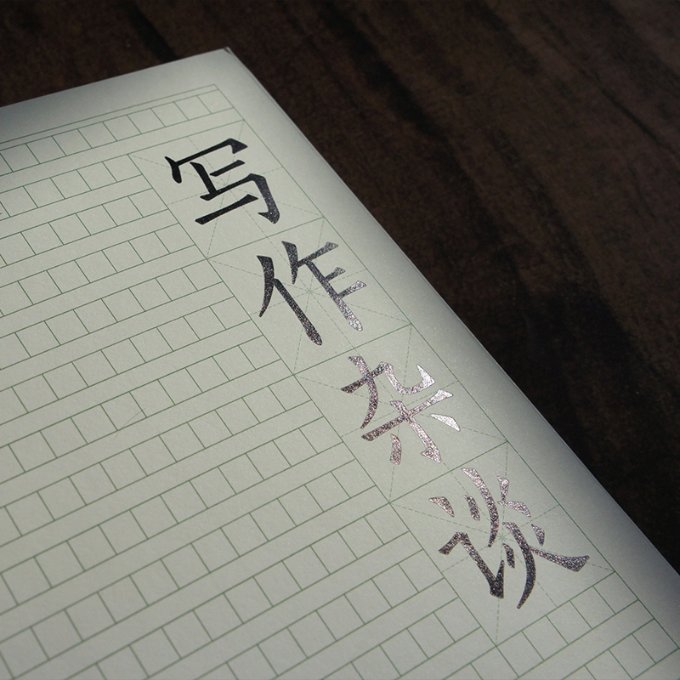 写作杂谈